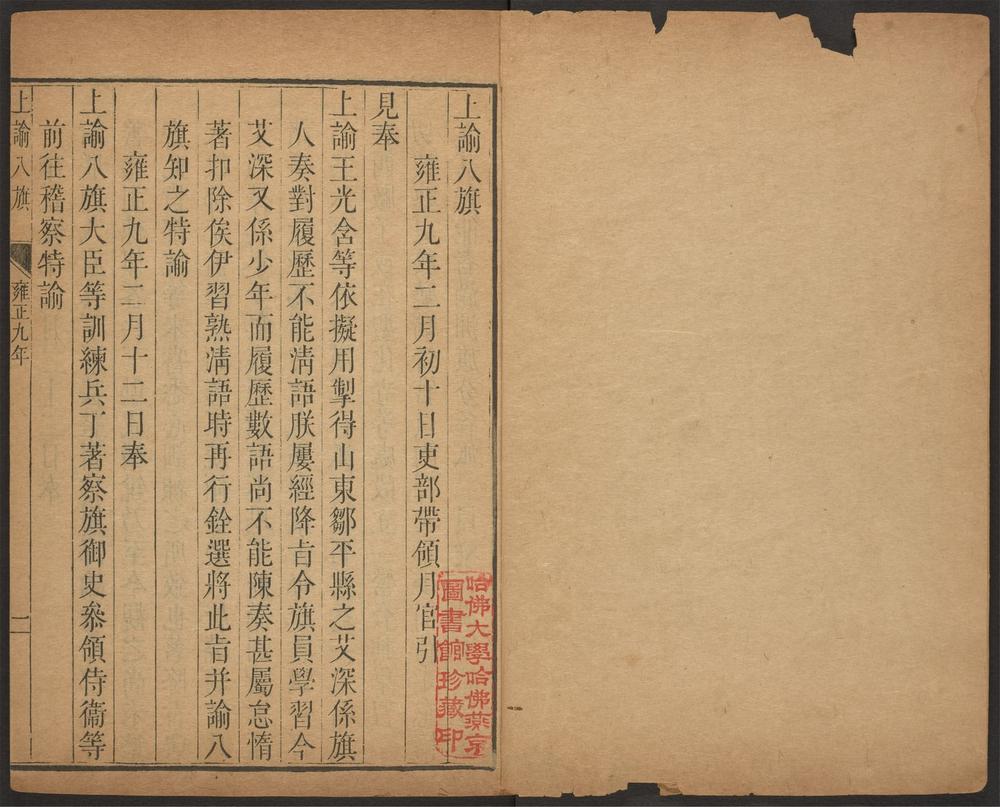 上諭八旗
雍正九年二月初十日吏部帶領月官引
見奉
上諭王光含等依擬用掣得山東鄒平縣之艾深係旗
人奏對履歷不能清語朕屢經降旨令旗員學習今
艾深又係少年而履歷數語尚不能陳奏甚屬怠惰
著扣除俟伊習熟清語時再行銓選將此旨并諭八
旗知之特諭
雍正九年二月十二日奉
上諭八旗大臣等訓練兵丁著察旗御史叅領侍衞等
前往稽察特諭
上諭八旗
雍正九年
一
哈佛大學哈佛燕京
圖書館珍藏印